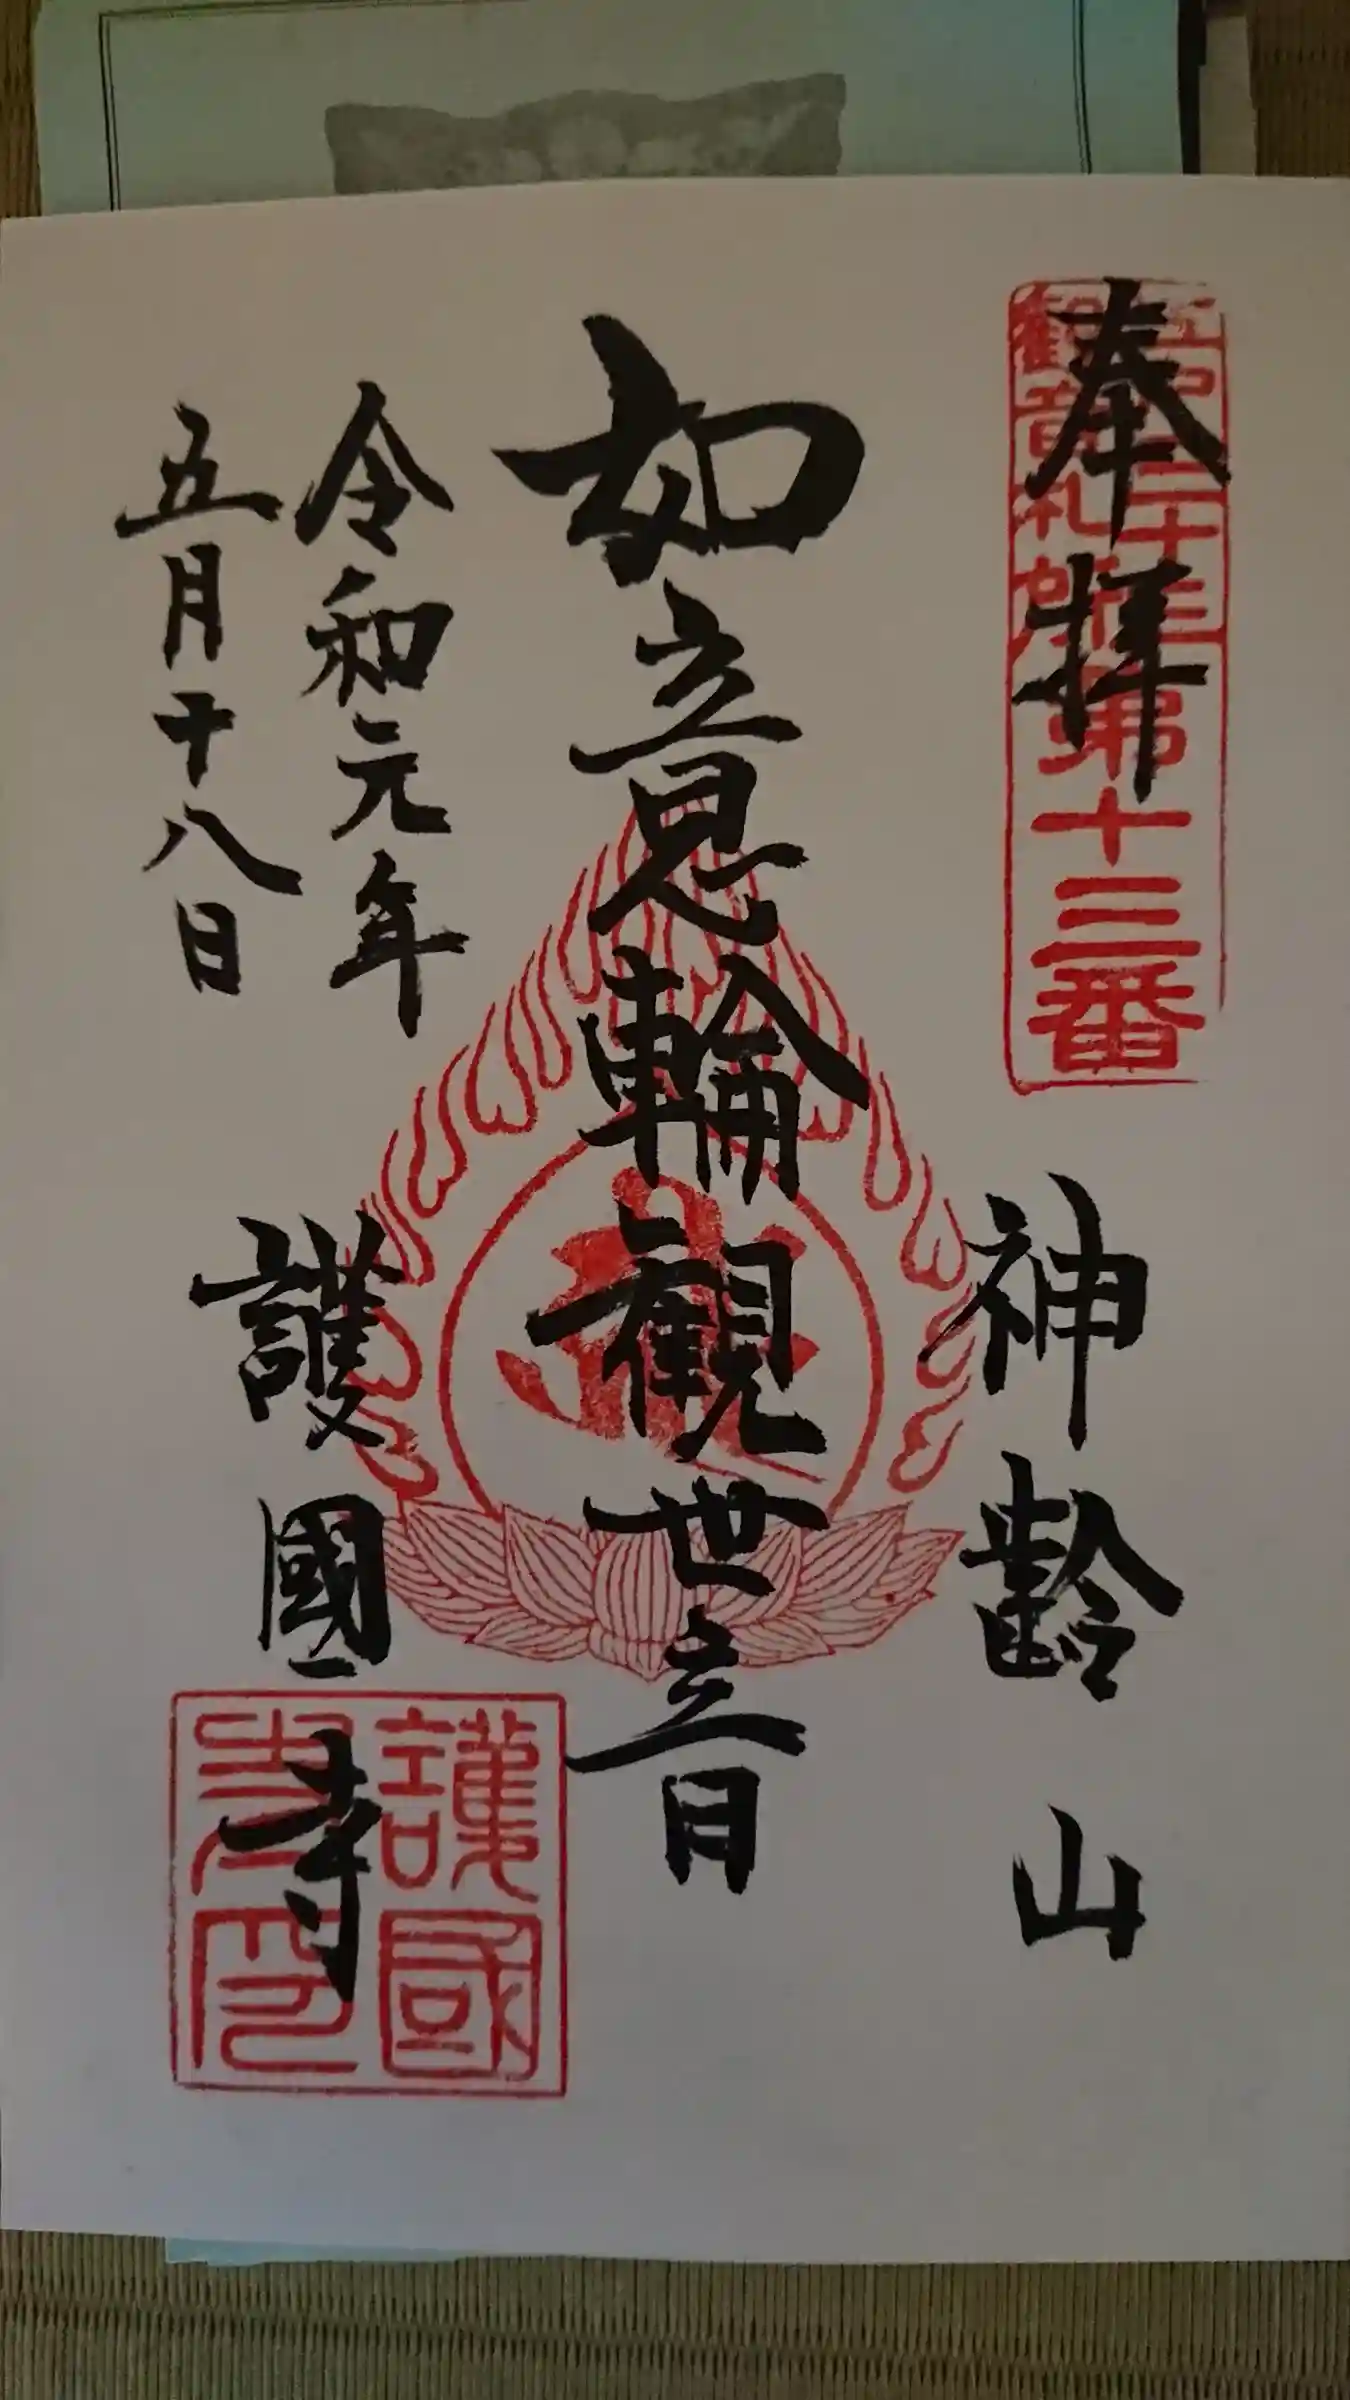 奉拝
江戸三十三
観音札所
第十三番
神齢山
如意輪観世音
令和元年
五月十八日
護國寺
護國
寺印